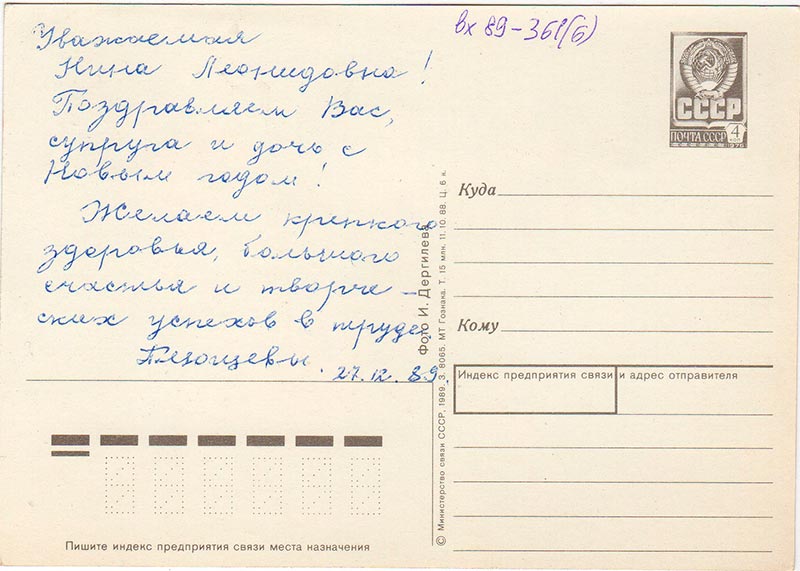 Уважаемая
Нина Леонидовна!
Поздравляем Вас,
супруга и дочь с
Новым годом!
Желаем крепкого
здоровья, большого
счастья и творче-
ских успехов в труде.
27.12.89.
вх 89-361(б)
СССР
ПОЧТА СССР
4
КОП
1976
Куда
Кому
Индекс предприятия связи и адрес отправителя
Фото И. Дергилева
© Министерство связи СССР, 1989. З. 8065. МТ Гознака. Т. 15 млн. 11.10.88. Ц. 6 к.
Пишите индекс предприятия связи места назначения